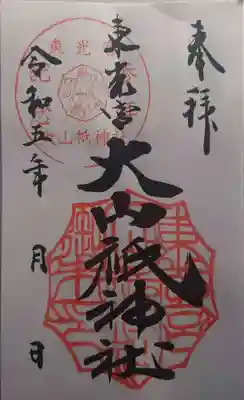 奉拝
東光宮
大山祇神社
令和五年 月 日
東光
大山祇神社